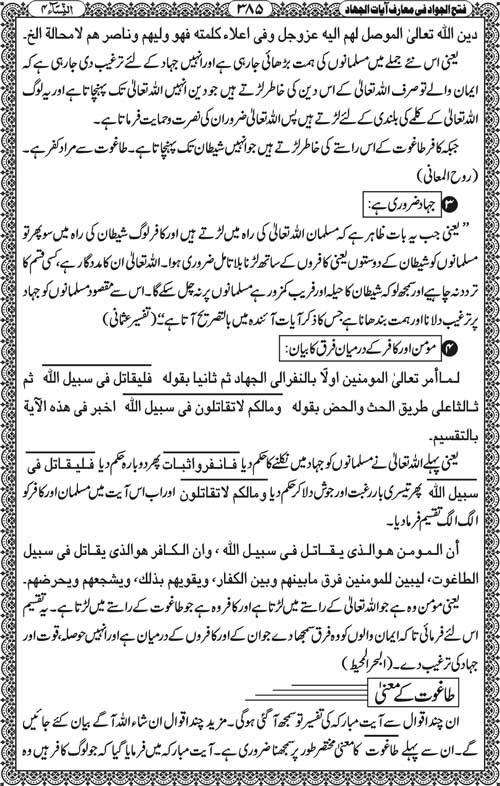 فتح الجواد فی معارف آیات الجهاد ۳۸۵ النِّسَآء ۴
دین اللہ تعالیٰ الموصل لهم الیه عزوجل وفی اعلاء کلمته فهو ولیهم وناصر هم لامحالة الخ۔
یعنی اس نئے جملے میں مسلمانوں کی ہمت بڑھائی جارہی ہے اور انہیں جہاد کے لئے ترغیب دی جارہی ہے کہ
ایمان والے تو صرف اللہ تعالیٰ کے اس دین کی خاطر لڑتے ہیں جو دین انہیں اللہ تعالیٰ تک پہنچاتا ہے اور یہ لوگ
اللہ تعالیٰ کے کلمے کی بلندی کے لئے لڑتے ہیں پس اللہ تعالیٰ ضرور ان کی نصرت وحمایت فرماتا ہے۔
جبکہ کافر طاغوت کے اس راستے کی خاطر لڑتے ہیں جو انہیں شیطان تک پہنچاتا ہے۔ طاغوت سے مراد کفر ہے۔
(روح المعانی)
۳ جہاد ضروری ہے:
”یعنی جب یہ بات ظاہر ہے کہ مسلمان اللہ تعالیٰ کی راہ میں لڑتے ہیں اور کافر لوگ شیطان کی راہ میں سو پھر تو
مسلمانوں کو شیطان کے دوستوں یعنی کافروں کے ساتھ لڑنا بلا تامل ضروری ہوا۔ اللہ تعالیٰ ان کا مددگار ہے، کسی قسم کا
تردد نہ چاہیے اور سمجھ لو کہ شیطان کا حیلہ اور فریب کمزور ہے مسلمانوں پر نہ چل سکے گا۔ اس سے مقصود مسلمانوں کو جہاد
پر ترغیب دلانا اور ہمت بندھانا ہے جس کا ذکر آیات آئندہ میں بالتصریح آتا ہے“۔ (تفسیر عثمانی)
۴ مومن اور کافر کے درمیان فرق کا بیان:
لماأمر تعالیٰ المومنین اولًا بالنفرالی الجهاد ثم ثانیا بقوله فلیقاتل فی سبیل اللہ ثم
ثالثاعلی طریق الحث والحض بقوله ومالکم لاتقاتلون فی سبیل اللہ اخبر فی هذه الآیة
بالتقسیم۔
یعنی پہلے اللہ تعالیٰ نے مسلمانوں کو جہاد میں نکلنے کا حکم دیا فانفرواثبات پھر دوبارہ حکم دیا فلیقاتل فی
سبیل اللہ پھر تیسری بار رغبت اور جوش دلا کر حکم دیا ومالکم لاتقاتلون اور اب اس آیت میں مسلمان اور کافر کو
الگ الگ تقسیم فرمادیا۔
أن المومن هوالذی یقاتل فی سبیل اللہ ، وان الکافر هوالذی یقاتل فی سبیل
الطاغوت، لیبین للمومنین فرق مابینهم وبین الکفار، ویقویهم بذلك، ویشجعهم ویحرضهم۔
یعنی مومن وہ ہے جو اللہ تعالیٰ کے راستے میں لڑتا ہے اور کافر وہ ہے جو طاغوت کے راستے میں لڑتا ہے۔ یہ تقسیم
اس لئے فرمائی تاکہ ایمان والوں کو وہ فرق سمجھا دے جو ان کے اور کافروں کے درمیان ہے اور انہیں حوصلہ، قوت اور
جہاد کی ترغیب دے۔ (البحر المحیط)
طاغوت کے معنیٰ
ان چند اقوال سے آیت مبارکہ کی تفسیر تو سمجھ آ گئی ہوگی۔ مزید چند اقوال ان شاء اللہ آگے بیان کئے جائیں
گے۔ ان سے پہلے طاغوت کا معنیٰ مختصر طور پر سمجھنا ضروری ہے۔ آیت مبارکہ میں فرمایا گیا کہ جو لوگ کافر ہیں وہ